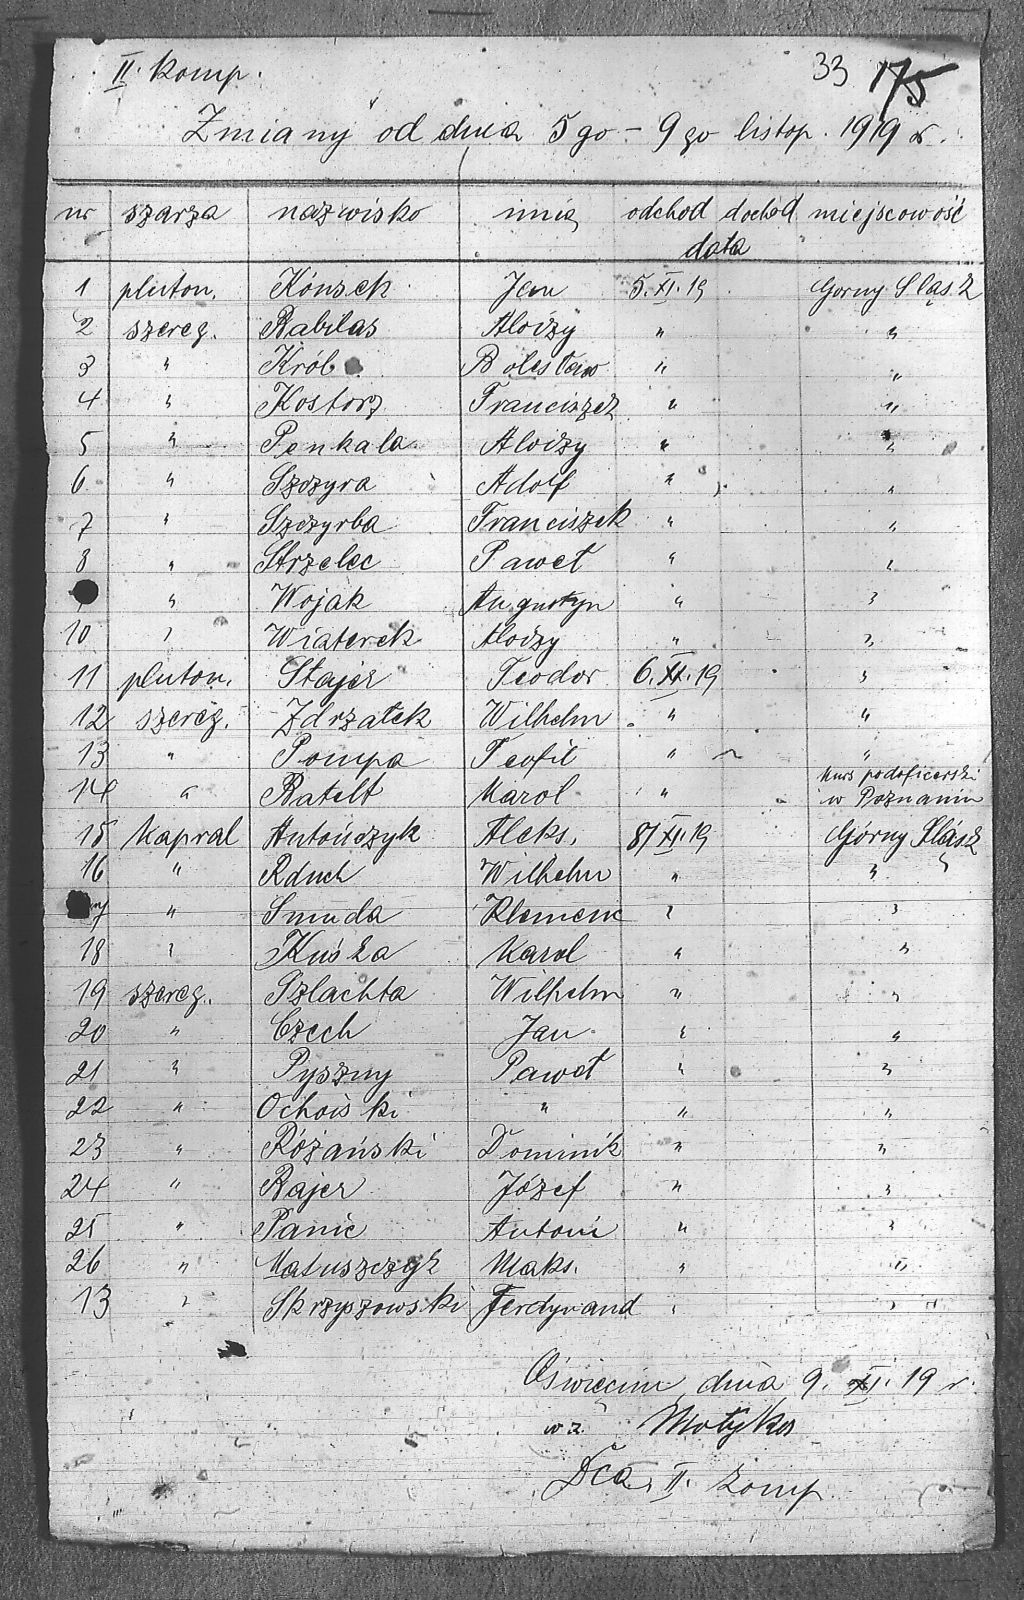 II. komp.
33 175
Zmiany od dnia 5go - 9go listop. 1919 r.
nr szarża nazwisko imię odchod dochód miejscowość
data
1 pluton. Kónsek Jan 5.XI.19 Gorny Sląsk
2 szereg. Rabilas Aloizy " "
3 " Król Bolesław " "
4 " Kostorz Franciszek " "
5 " Penkala Aloizy " "
6 " Szczyra Adolf " "
7 " Szczyrba Franciszek " "
8 " Strzelec Paweł " "
" Wojak Augustyn " "
10 " Wiaterek Aloizy " "
11 pluton. Stajer Teodor 6.XI.19 "
12 szereg. Zdrzałek Wilhelm " "
13 " Pompa Teofil " "
14 " Ratelt Karol " kurs podoficerski
w Poznaniu
15 Kapral Antończyk Aleks. 8/XI.19 Górny Sląsk
16 " Rduch Wilhelm " "
17 " Smuda Klemens " "
18 " Kuśka Karol " "
19 szereg. Szlachta Wilhelm " "
20 " Czech Jan " "
21 " Pyszny Paweł " "
22 " Ochojski " " "
23 " Różański Dominik " "
24 " Rajer Józef " "
25 " Panic Antoni " "
26 " Matuszczyk Maks. " "
13 " Skrzyszowski Ferdynand " "
Oświęcim dnia 9. XI. 19 r.
w z. Motyka
Dca. II. komp.